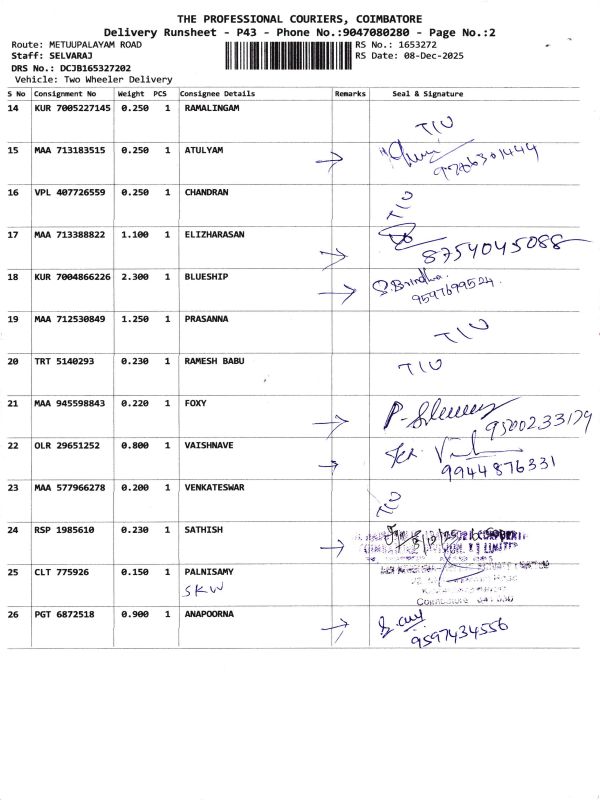 THE PROFESSIONAL COURIERS, COIMBATORE
Delivery Runsheet - P43 - Phone No.:9047080280 - Page No.:2
Route: METUUPALAYAM ROAD RS No.: 1653272
Staff: SELVARAJ RS Date: 08-Dec-2025
DRS No.: DCJB165327202
Vehicle: Two Wheeler Delivery
S No Consignment No Weight PCS Consignee Details Remarks Seal & Signature
14 KUR 7005227145 0.250 1 RAMALINGAM
TIU
15 MAA 713183515 0.250 1 ATULYAM
9786301444
16 VPL 407726559 0.250 1 CHANDRAN
TIU
17 MAA 713388822 1.100 1 ELIZHARASAN
8754045088
18 KUR 7004866226 2.300 1 BLUESHIP
S.Brindha.
9597699524.
19 MAA 712530849 1.250 1 PRASANNA
TIU
20 TRT 5140293 0.230 1 RAMESH BABU
TIU
21 MAA 945598843 0.220 1 FOXY
9500233179
22 OLR 29651252 0.800 1 VAISHNAVE
9944876331
23 MAA 577966278 0.200 1 VENKATESWAR
TIU
24 RSP 1985610 0.230 1 SATHISH
25 CLT 775926 0.150 1 PALNISAMY
SKW
Coimbatore
26 PGT 6872518 0.900 1 ANAPOORNA
9597434556